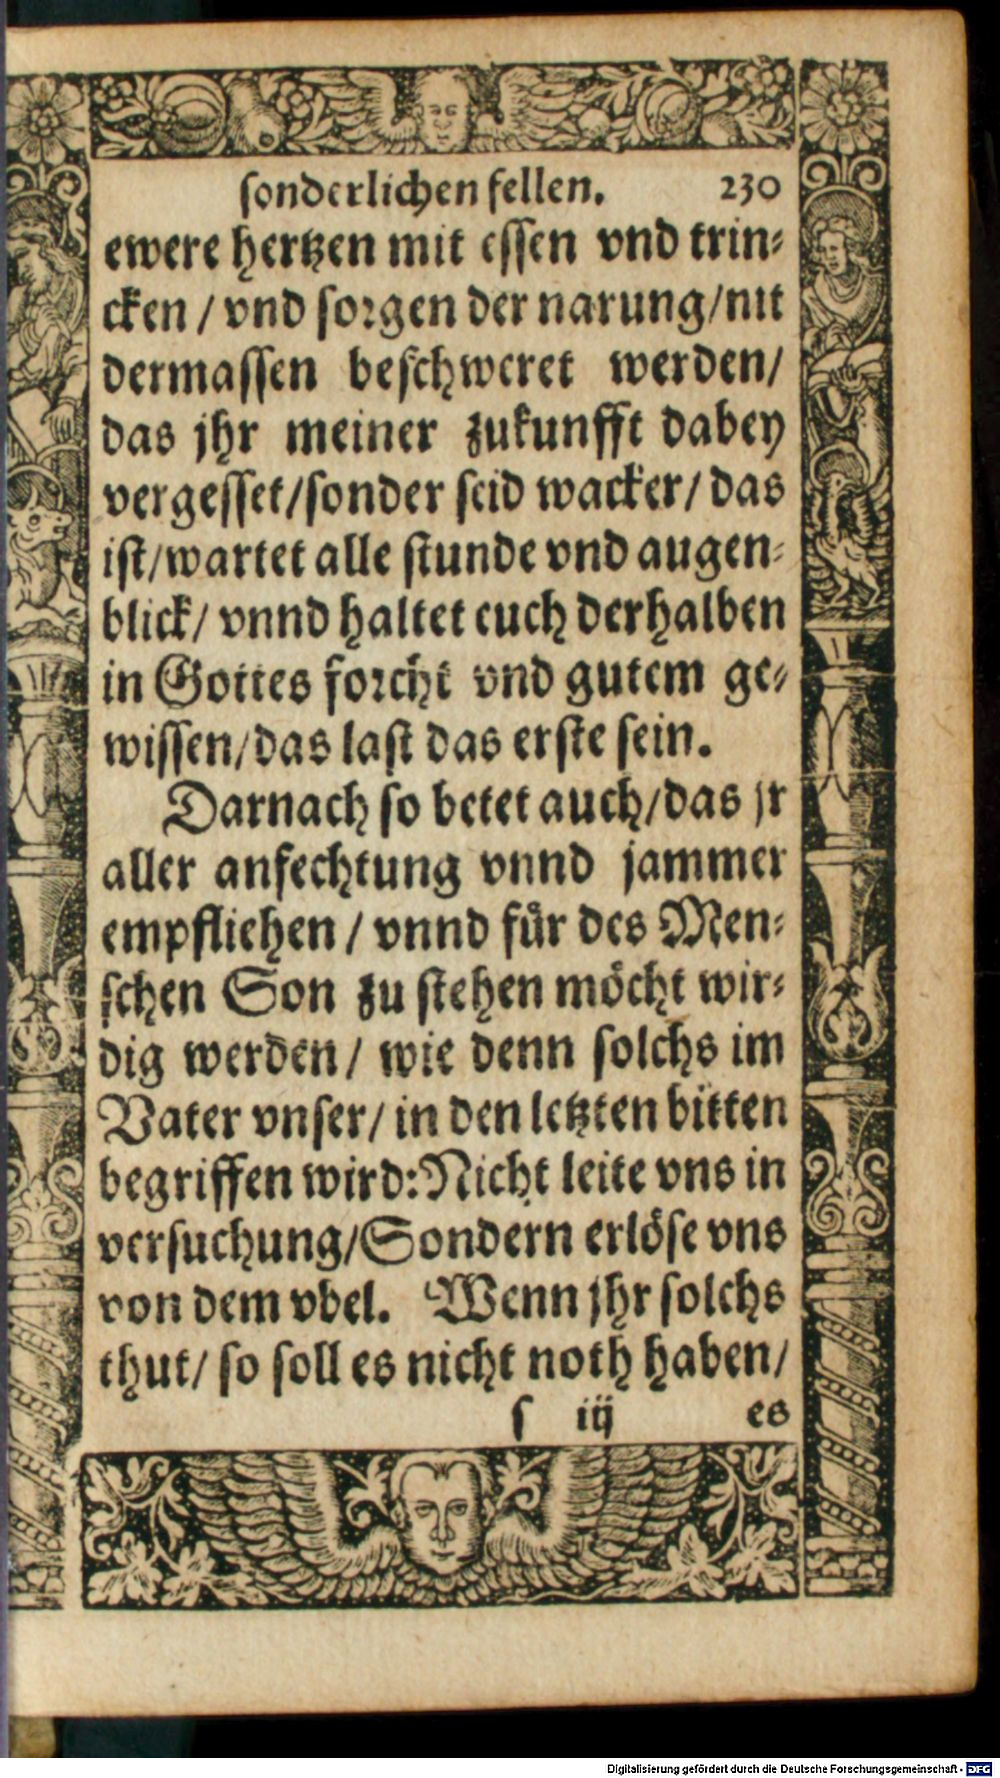 sonderlichen fellen. 230
ewere hertzen mit essen vnd trin-
cken / vnd sorgen der narung/nit
dermassen beschweret werden/
das jhr meiner zukunfft dabey
vergesset/sonder seid wacker/ das
ist/wartet alle stunde vnd augen-
blick/ vnnd haltet euch derhalben
in Gottes forcht vnd gutem ge-
wissen/das last das erste sein.
Darnach so betet auch/das jr
aller anfechtung vnnd jammer
empfliehen / vnnd für des Men-
schen Son zu stehen möcht wir-
dig werden/ wie denn solchs im
Vater vnser/ in den letzten bitten
begriffen wird:Nicht leite vns in
versuchung/Sondern erlöse vns
von dem vbel. Wenn jhr solchs
thut/ so soll es nicht noth haben/
s iij es
Digitalisierung gefördert durch die Deutsche Forschungsgemeinschaft - DFG